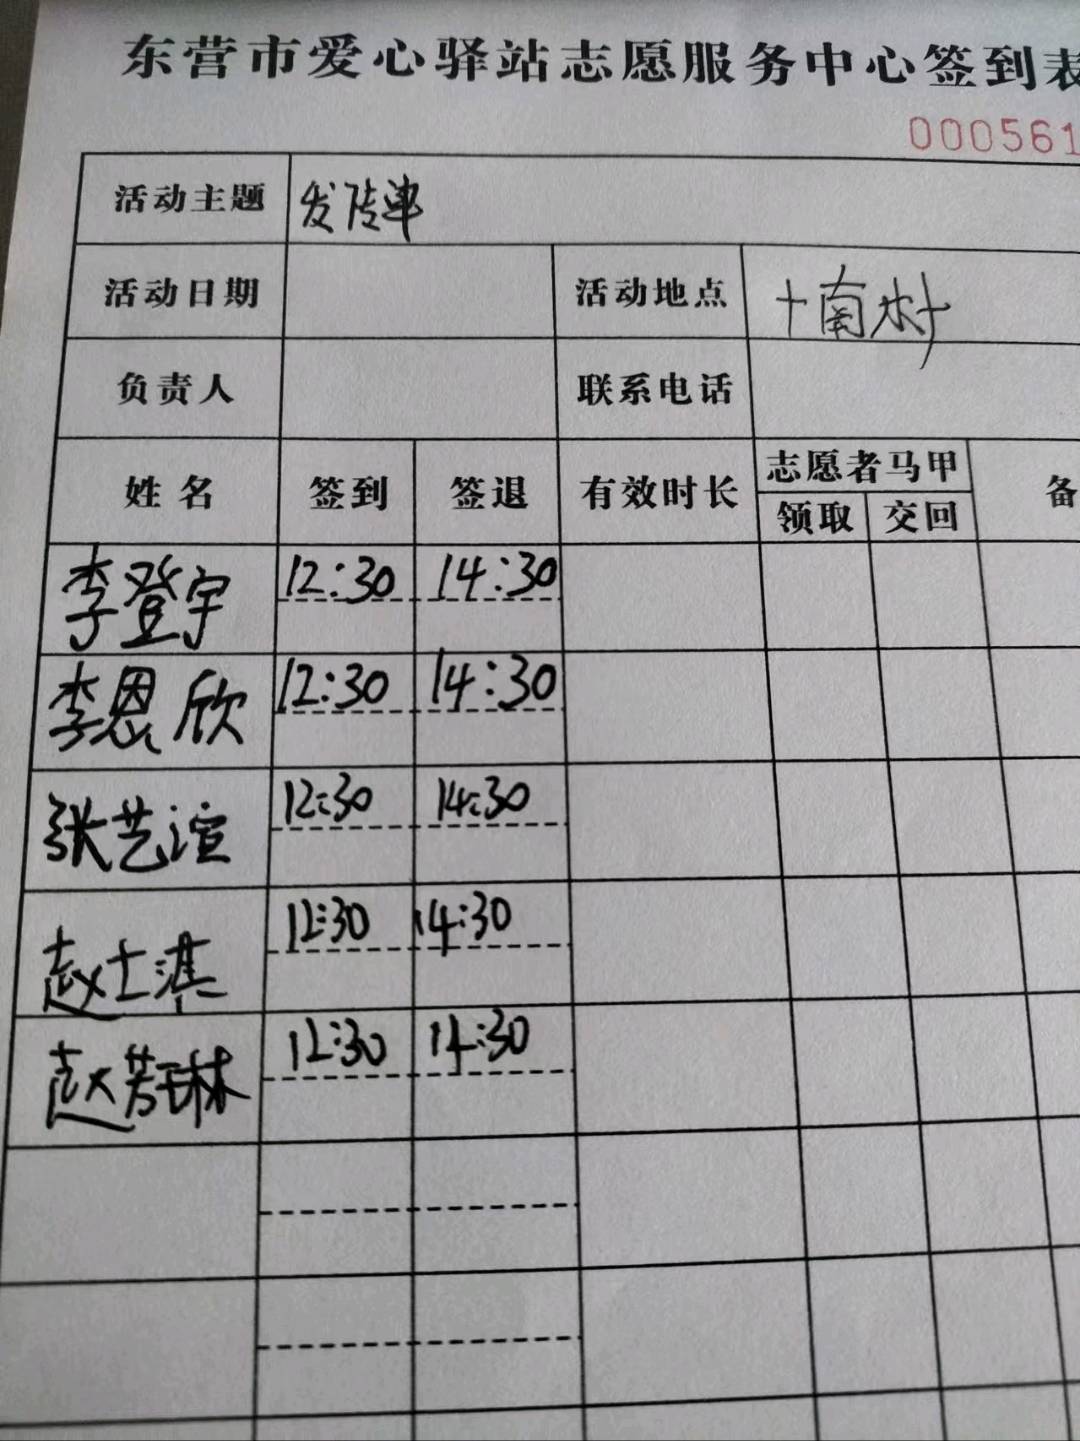 东营市爱心驿站志愿服务中心签到表
000561
活动主题 发传单
活动日期 活动地点 十南村
负责人 联系电话
姓名 签到 签退 有效时长 志愿者马甲 备
领取 交回
李登宇 12:30 14:30
李恩欣 12:30 14:30
张艺渲 12:30 14:30
赵士淇 12:30 14:30
赵芳琳 12:30 14:30